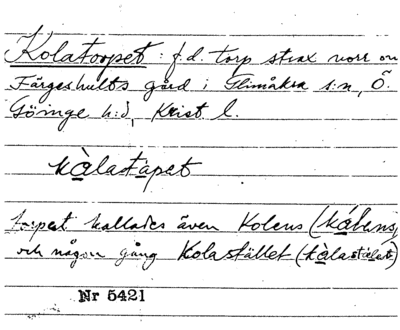 Kolatorpet : f.d. torp strax norr om
Färgeshults gård i Glimåkra s:n, Ö.
Göinge h:d, Krist. l.
kàlatápet
torpet kallades även Kolens (kálens)
och någon gång Kolastället (kàlastälet)
Nr 5421